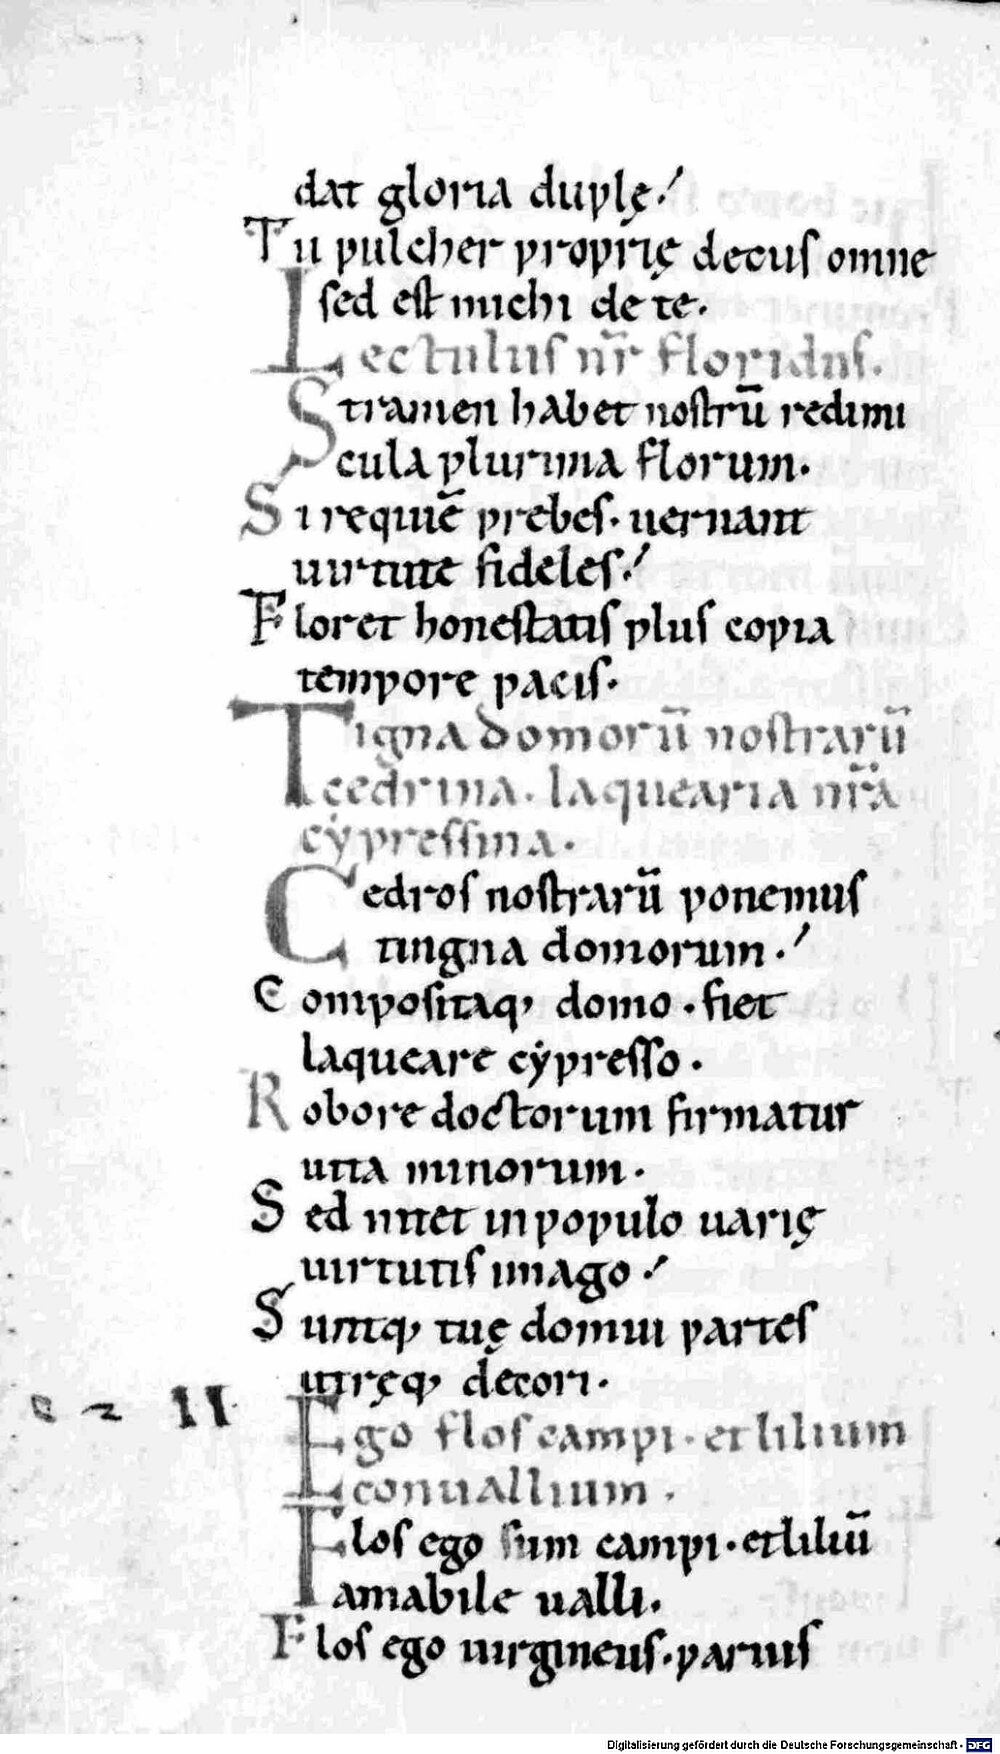 dat gloria duplę!
Tu pulcher proprię decus omne
sed est michi de te.
Lectulus nr̄ floridus.
Stramen habet nostrū redimi
cula plurima florum.
Si requiē prebes. uernant
uirtute fideles!
Floret honestatis plus copia
tempore pacis.
Tigna domorū nostrarū
cedrina. laquearia nr̄a
cẏpressina.
Cedros nostrarū ponemus
tingna domorum.!
Compositaq; domo. fiet
laqueare cẏpresso.
Robore doctorum firmatur
uita minorum.
Sed nitet in populo uarię
uirtutis imago!
Suntq; tuę domui partes
utręq; decori.
II.
Ego flos campi. et lilium
conuallium.
Flos ego sum campi. et liliū
amabile ualli.
Flos ego uirgineus. paruus
Digitalisierung gefördert durch die Deutsche Forschungsgemeinschaft - DFG